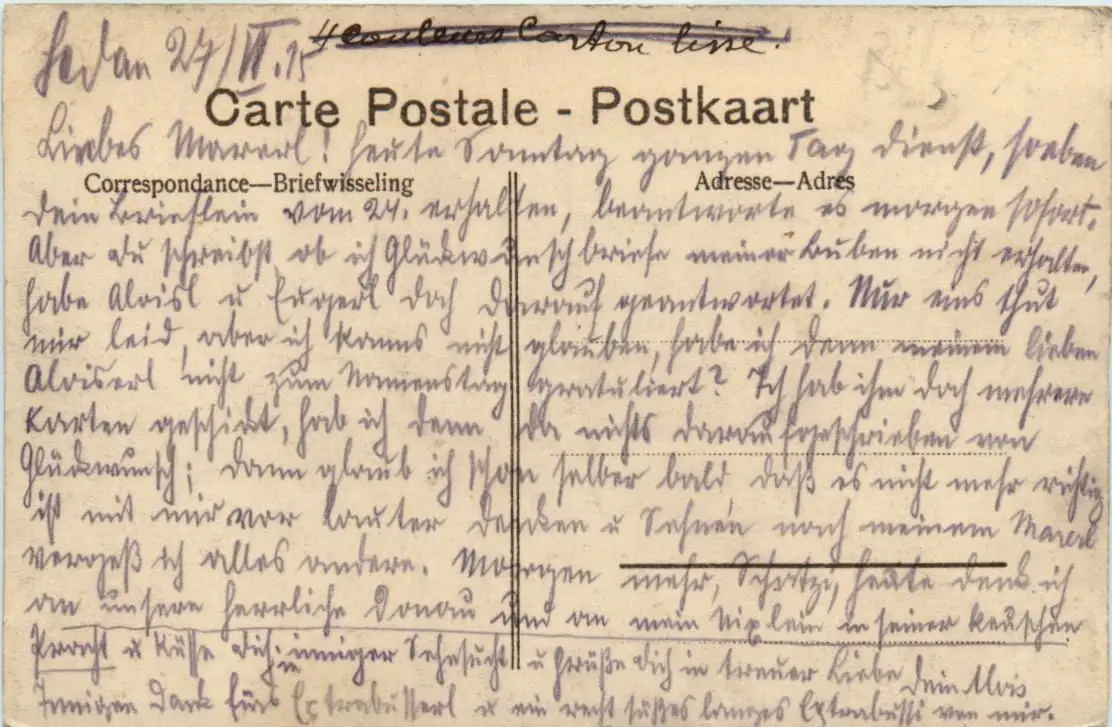 4 couleurs Carton lisse.
Sedan 27/VI.15
Carte Postale - Postkaart
Liebes Marerl! Heute Sonntag ganzen Tag Dienst, soeben
Correspondance—Briefwisseling
Adresse—Adres
Dein Brieflein vom 24. erhalten, beantworte es morgen sofort.
Aber Du schreibst ob ich Glückwunschbriefe meiner Buben nicht erhalten,
habe Aloisl u Eugerl doch darauf geantwortet. Nur eins thut
mir leid, aber ich kanns nicht glauben, habe ich denn meinem lieben
Aloiserl nicht zum Namenstag gratuliert? Ich hab ihm doch mehrere
Karten geschickt, hab ich denn da nichts darauf geschrieben von
Glückwunsch; dann glaub ich schon selber bald, daß es nicht mehr richtig
ist mit mir vor lauter Denken u Sehnen nach meinem Marerl
vergeß ich alles andere. Morgen mehr, Schatzi, heute denk ich
an unsere herrliche Donau und an mein Nixlein in seiner keuschen
Pracht u küsse Dich in inniger Sehnsucht u grüße Dich in treuer Liebe Dein Alois
Innigen Dank fürs Extrabusserl u ein recht süßes langes Extrabussi von mir.